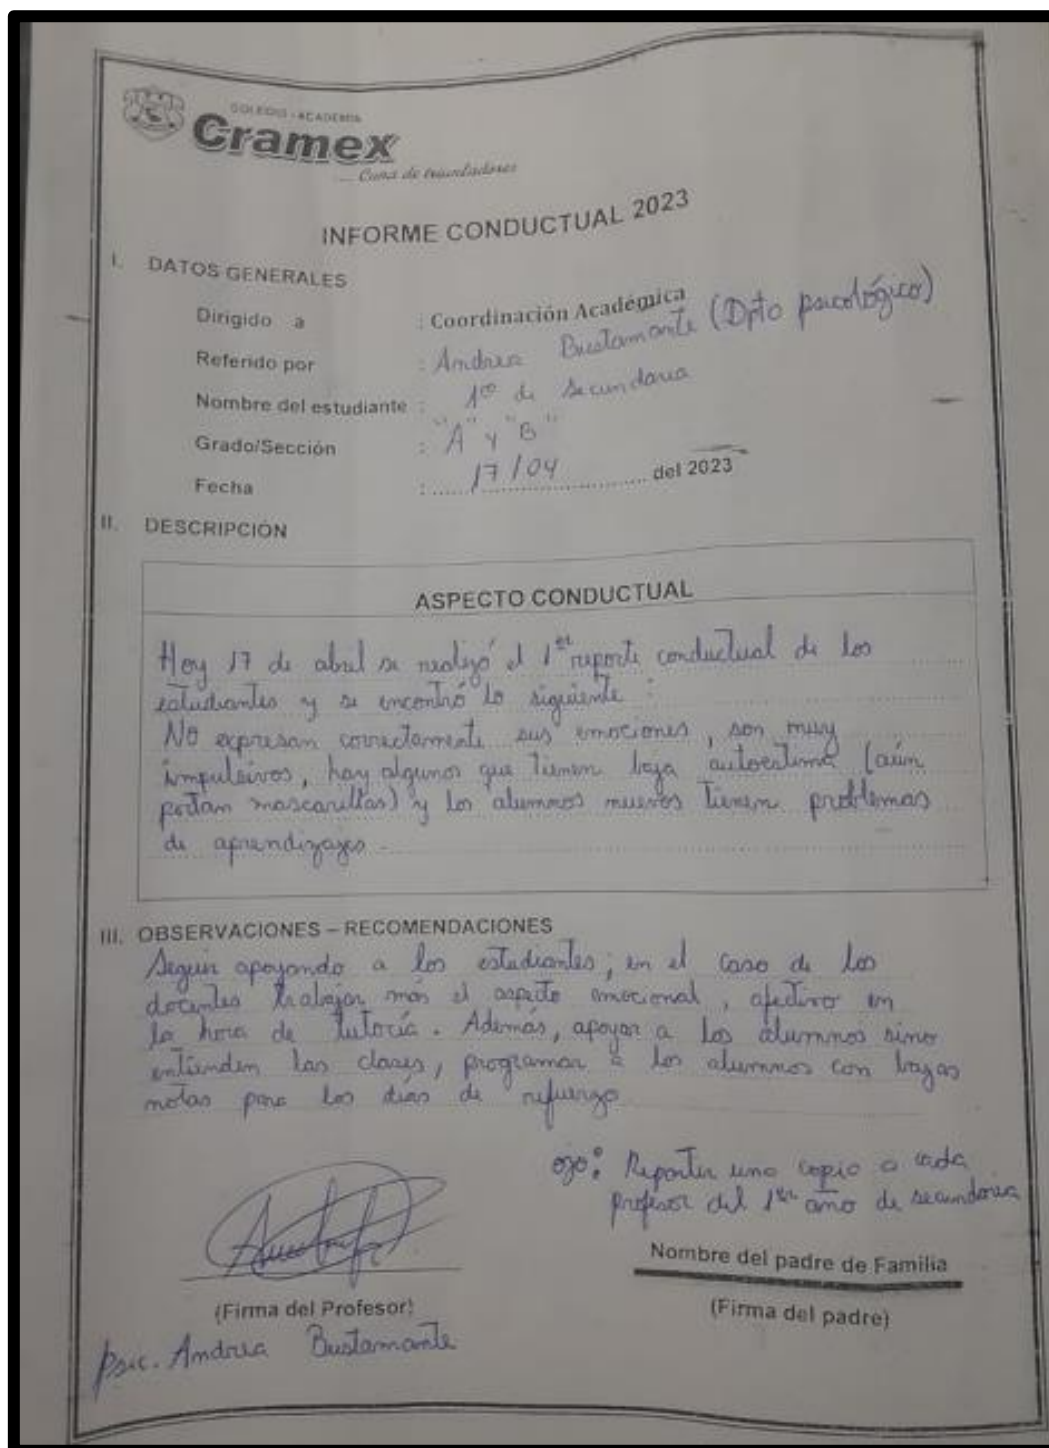 COLEGIO - ACADEMIA
Cramex
.... Cuna de triunfadores
INFORME CONDUCTUAL 2023
I. DATOS GENERALES
Dirigido a : Coordinación Académica
Referido por : Andrea Bustamante (Dpto psicológico)
Nombre del estudiante : 1ro de secundaria
Grado/Sección : "A" y "B"
Fecha : 17/04 del 2023
II. DESCRIPCIÓN
ASPECTO CONDUCTUAL
Hoy 17 de abril se realizó el 1er reporte conductual de los
estudiantes y se encontró lo siguiente :
No expresan correctamente sus emociones, son muy
impulsivos, hay algunos que tienen baja autoestima (aún
portan mascarillas) y los alumnos nuevos tienen problemas
de aprendizajes.
III. OBSERVACIONES – RECOMENDACIONES
Seguir apoyando a los estudiantes; en el caso de los
docentes trabajar más el aspecto emocional, afectivo en
la hora de tutoría. Además, apoyar a los alumnos sino
entienden las clases, programar a los alumnos con bajas
notas para los días de refuerzo
ojo: Repartir una copia a cada
profesor del 1er año de secundaria
Nombre del padre de Familia
(Firma del Profesor)
(Firma del padre)
Psic. Andrea Bustamante